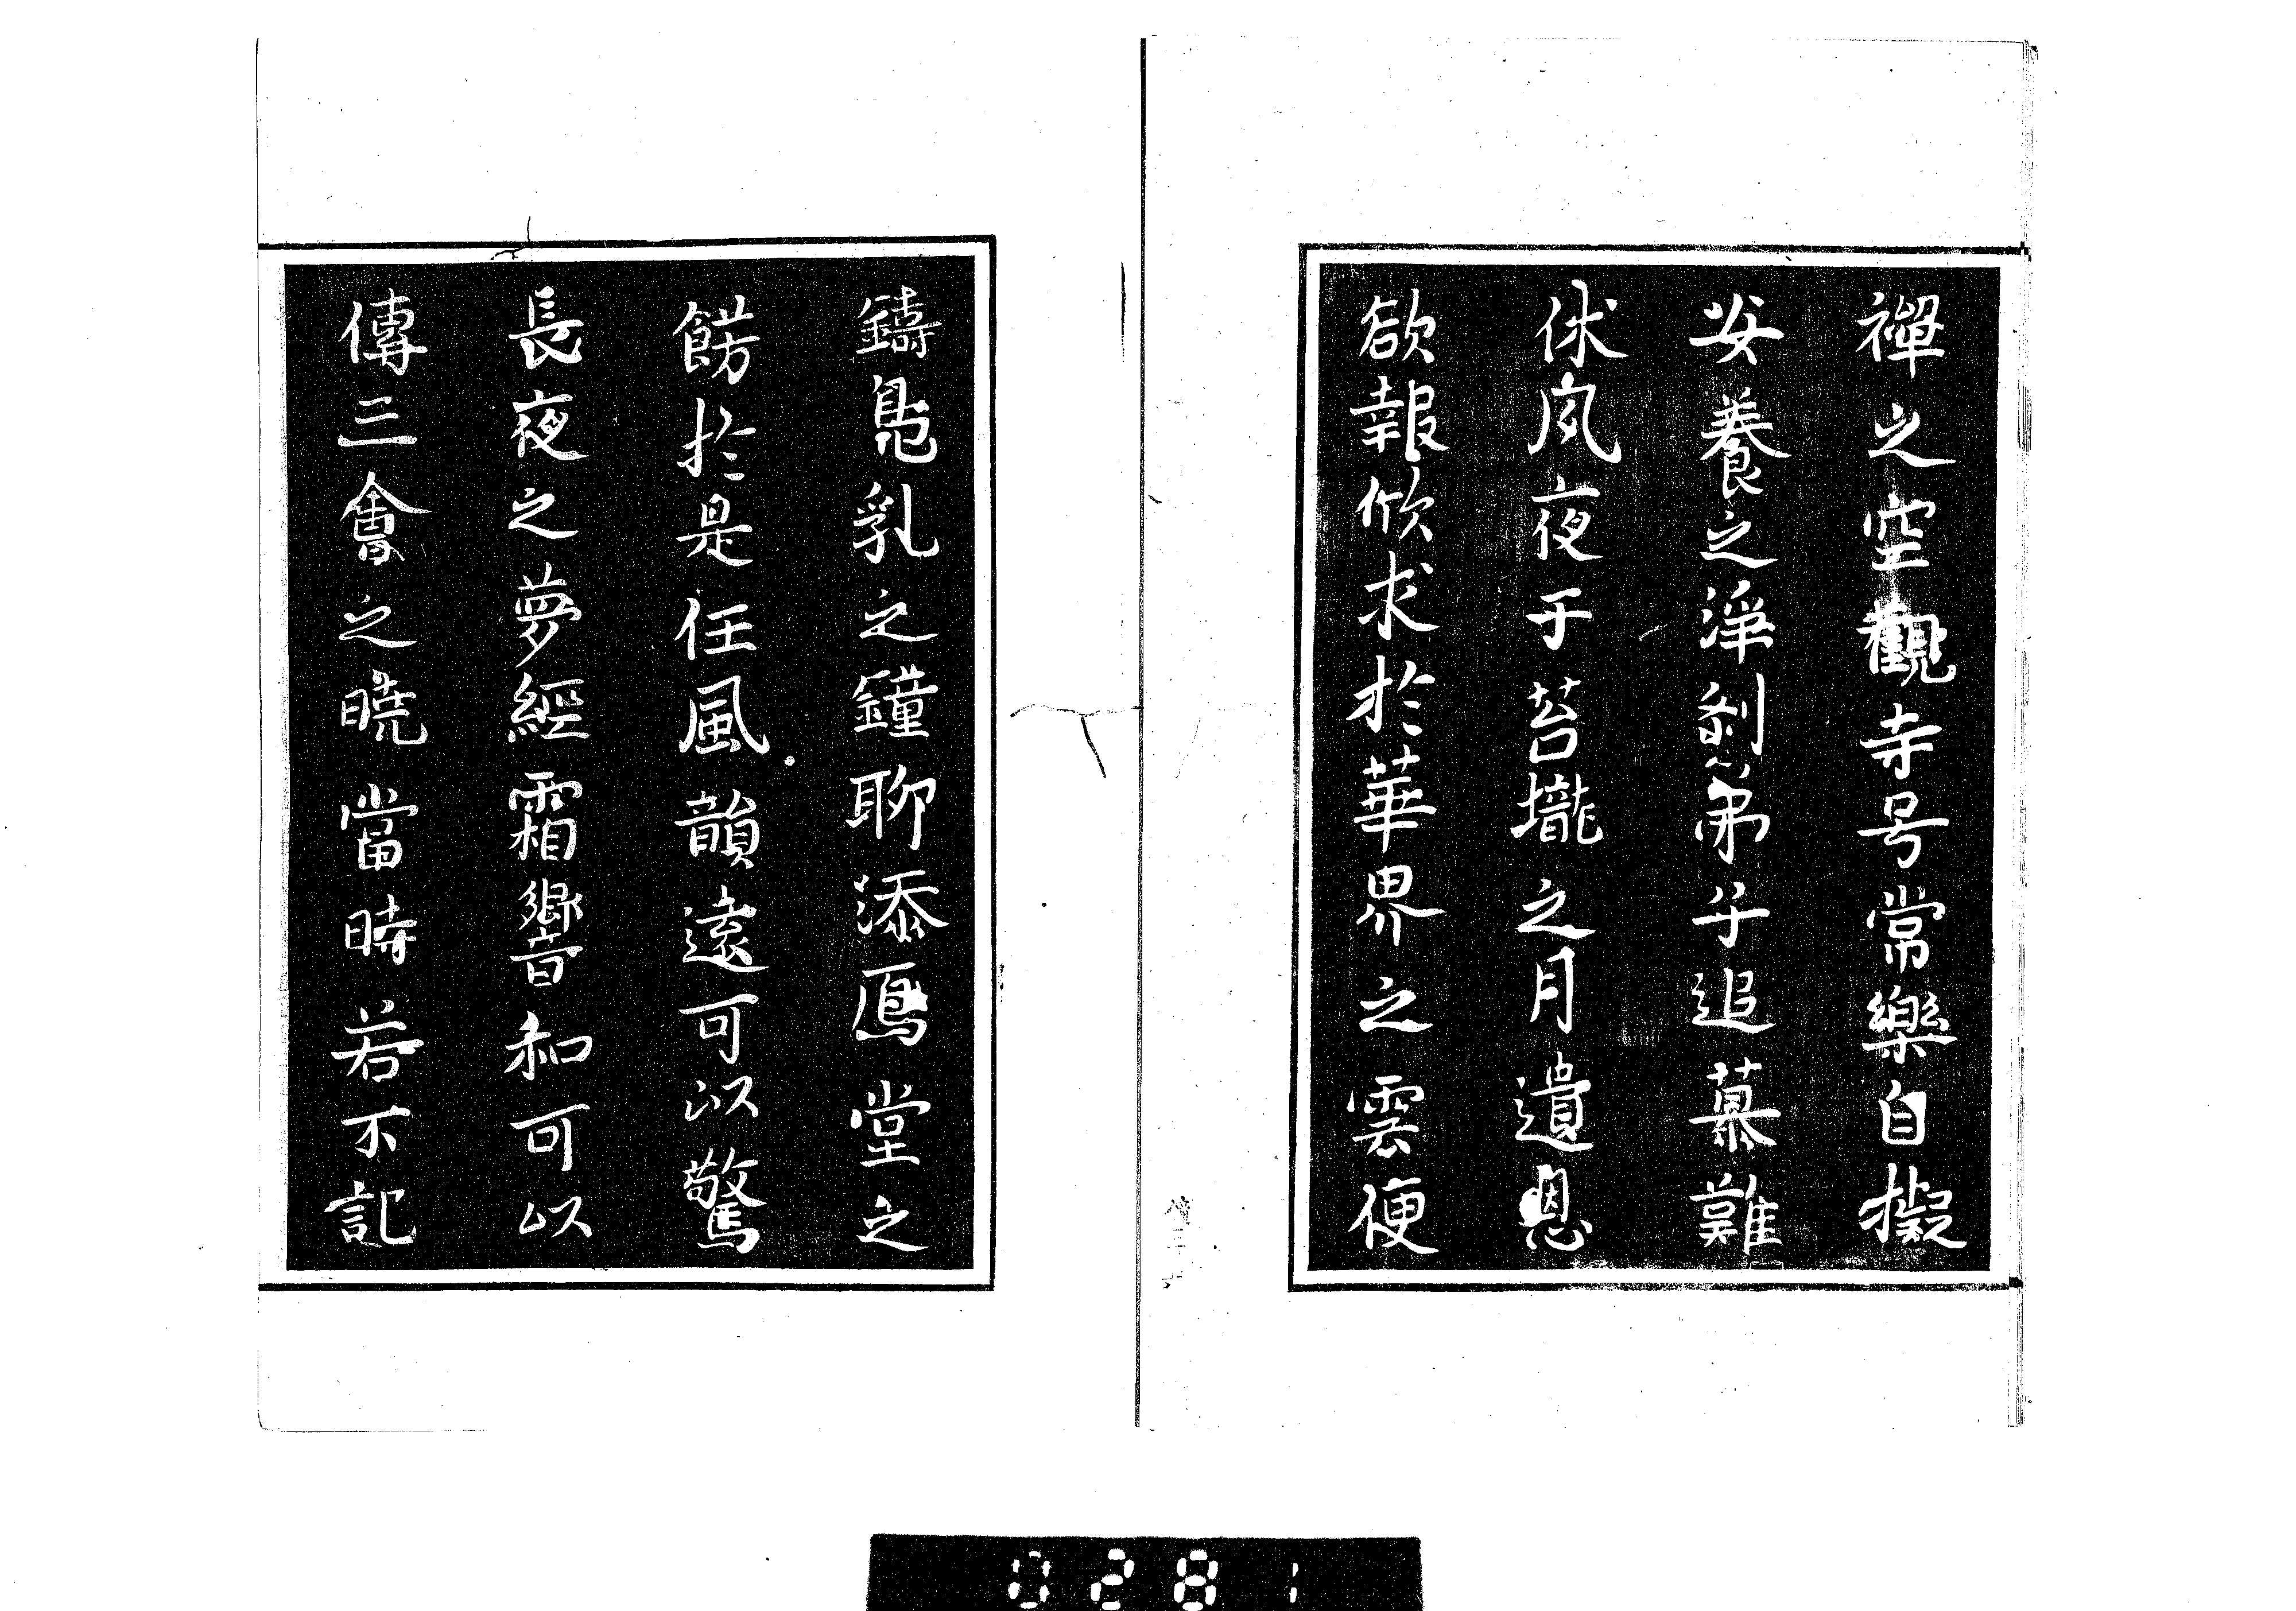 禪之空觀寺号常樂自擬
安養之淨刹弟子追慕難
休夙夜于苔壠之月遺恩
欲報欣求於華界之雲便
鑄鳧乳之鐘聊添鴈堂之
餝於是任風韻遠可以驚
長夜之夢經霜響和可以
傳三會之曉當時若不記
0281